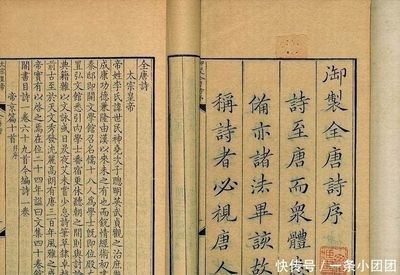 御製全唐詩序
詩至唐而衆體
備亦諸法畢該故
稱詩者必視唐人
全唐詩
太宗皇帝
帝姓李氏諱世民神堯次子聰明英武貞觀之治庶幾
成康功德兼隆由漢以來未之有也而銳情經術初建
秦邸即開文學館召名儒十八人為學士既即位殿左
置弘文館悉引內學士番宿更休聽朝之間則與討論
典籍雜以文詠或日昃夜艾未嘗少怠詩筆草隸卓越
前古至於天文秀發沈麗高朗有唐三百年風雅之盛
帝實有以啓之焉在位二十四年諡曰文集四十卷
閣書目詩一卷六十九首今編詩一卷
帝京篇十首
快传号 / 一条小团团